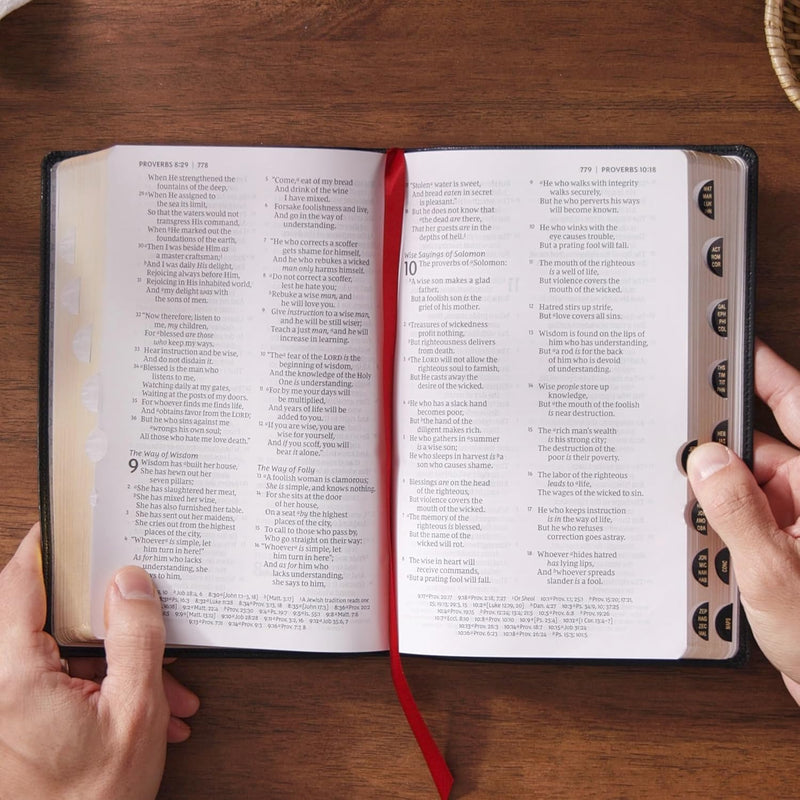 PROVERBS 8:29 | 778
When He strengthened the
fountains of the deep,
29 When He assigned to
the sea its limit,
So that the waters would not
transgress His command,
When He marked out the
foundations of the earth,
30 Then I was beside Him as
a master craftsman;
And I was daily His delight,
Rejoicing always before Him,
31 Rejoicing in His inhabited world,
And my delight was with
the sons of men.
32 "Now therefore, listen to
me, my children,
For blessed are those
who keep my ways.
33 Hear instruction and be wise,
And do not disdain it.
34 Blessed is the man who
listens to me,
Watching daily at my gates,
Waiting at the posts of my doors.
35 For whoever finds me finds life,
And obtains favor from the LORD;
36 But he who sins against me
wrongs his own soul;
All those who hate me love death."
The Way of Wisdom
9 Wisdom has built her house,
She has hewn out her
seven pillars;
2 She has slaughtered her meat,
She has mixed her wine,
She has also furnished her table.
3 She has sent out her maidens,
She cries out from the highest
places of the city,
4 "Whoever is simple, let
him turn in here!"
As for him who lacks
understanding, she
says to him,
5 "Come, eat of my bread
And drink of the wine
I have mixed.
6 Forsake foolishness and live,
And go in the way of
understanding.
7 "He who corrects a scoffer
gets shame for himself,
And he who rebukes a wicked
man only harms himself.
8 Do not correct a scoffer,
lest he hate you;
Rebuke a wise man, and
he will love you.
9 Give instruction to a wise man,
and he will be still wiser;
Teach a just man, and he will
increase in learning.
10 "The fear of the LORD is the
beginning of wisdom,
And the knowledge of the Holy
One is understanding.
11 For by me your days will
be multiplied,
And years of life will be
added to you.
12 If you are wise, you are
wise for yourself,
And if you scoff, you will
bear it alone."
The Way of Folly
13 A foolish woman is clamorous;
She is simple, and knows nothing.
14 For she sits at the door
of her house,
On a seat by the highest
places of the city,
15 To call to those who pass by,
Who go straight on their way:
16 "Whoever is simple, let
him turn in here";
And as for him who lacks
understanding, she
says to him,
779 | PROVERBS 10:18
17 "Stolen water is sweet,
And bread eaten in secret
is pleasant."
18 But he does not know that
the dead are there,
That her guests are in the
depths of hell.
Wise Sayings of Solomon
10 The proverbs of Solomon:
A wise son makes a glad
father,
But a foolish son is the
grief of his mother.
2 Treasures of wickedness
profit nothing,
But righteousness delivers
from death.
3 The LORD will not allow the
righteous soul to famish,
But He casts away the
desire of the wicked.
4 He who has a slack hand
becomes poor,
But the hand of the
diligent makes rich.
5 He who gathers in summer
is a wise son;
He who sleeps in harvest is a
son who causes shame.
6 Blessings are on the head
of the righteous,
But violence covers the
mouth of the wicked.
7 The memory of the
righteous is blessed,
But the name of the
wicked will rot.
8 The wise in heart will
receive commands,
But a prating fool will fall.
9 He who walks with integrity
walks securely,
But he who perverts his ways
will become known.
10 He who winks with the
eye causes trouble,
But a prating fool will fall.
11 The mouth of the righteous
is a well of life,
But violence covers the
mouth of the wicked.
12 Hatred stirs up strife,
But love covers all sins.
13 Wisdom is found on the lips of
him who has understanding,
But a rod is for the back
of him who is devoid
of understanding.
14 Wise people store up
knowledge,
But the mouth of the foolish
is near destruction.
15 The rich man's wealth
is his strong city;
The destruction of the
poor is their poverty.
16 The labor of the righteous
leads to life,
The wages of the wicked to sin.
17 He who keeps instruction
is in the way of life,
But he who refuses
correction goes astray.
18 Whoever hides hatred
has lying lips,
And whoever spreads
slander is a fool.
MAT
MAR
LUK
JHN
ACT
ROM
COR
GAL
EPH
PHI
COL
THS
TIM
TIT
PHN
HEB
JON
MIC
NAH
HAB
CONC
ZEP
HAG
ZEC
MAL
MAPS